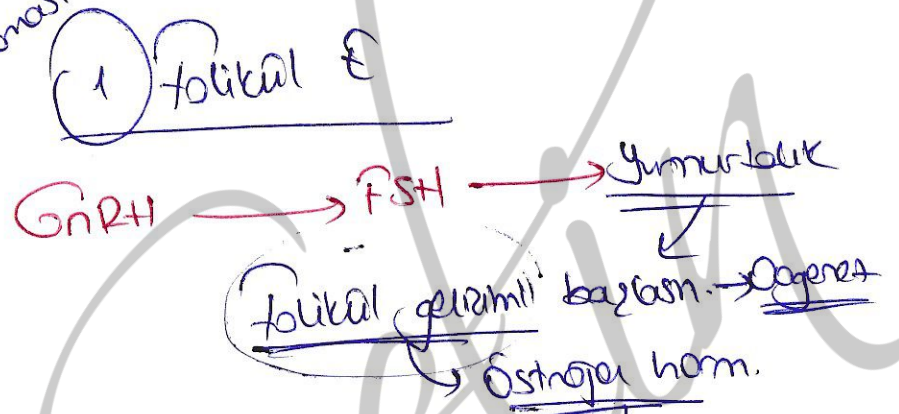 1 Folikül E
GnRH → FSH → Yumurtalık
Folikül gelişimli başlasın. → Oogenez
Östrojen horm.